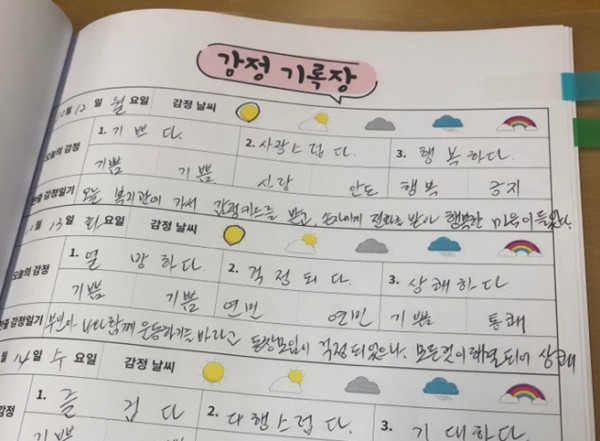 감정 기록장
월 12 일 월 요일 감정 날씨
오늘의 감정 1. 기쁘다. 2. 사랑스럽다. 3. 행복하다.
기쁨 기쁨 신랑 안도 행복 긍지
한줄 감정일기 오늘 복지관에 가서 감정카드를 받고, 손자에게 전화를 받아 행복한 마음이 들었다.
월 13 일 화 요일 감정 날씨
오늘의 감정 1. 열망하다. 2. 걱정되다. 3. 상쾌하다
기쁨 기쁨 연민 연민 기쁨 통쾌
한줄 감정일기 부인이 나와 함께 운동하기를 바라고 동창모임이 걱정되었으나, 모든것이 해결되어 상쾌
월 14 일 수 요일 감정 날씨
감정 1. 즐겁다 2. 다행스럽다. 3. 기대하다.
기쁨 기쁨